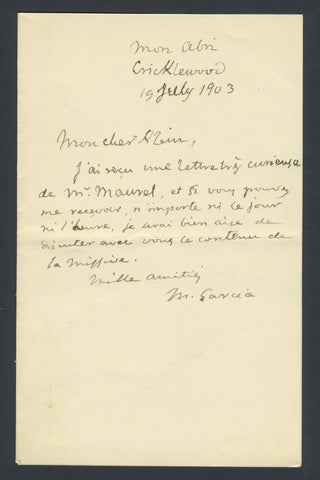 Mon Abri
Cricklewood
19 July 1903
Mon cher Klein,
J'ai reçu une lettre très curieuse
de Mr. Maurel, et si vous pouvez
me recevoir, n'importe ni le jour
ni l'heure, je serai bien aise de
discuter avec vous le contenu de
la missive.
Mille amitiés
M. Garcia